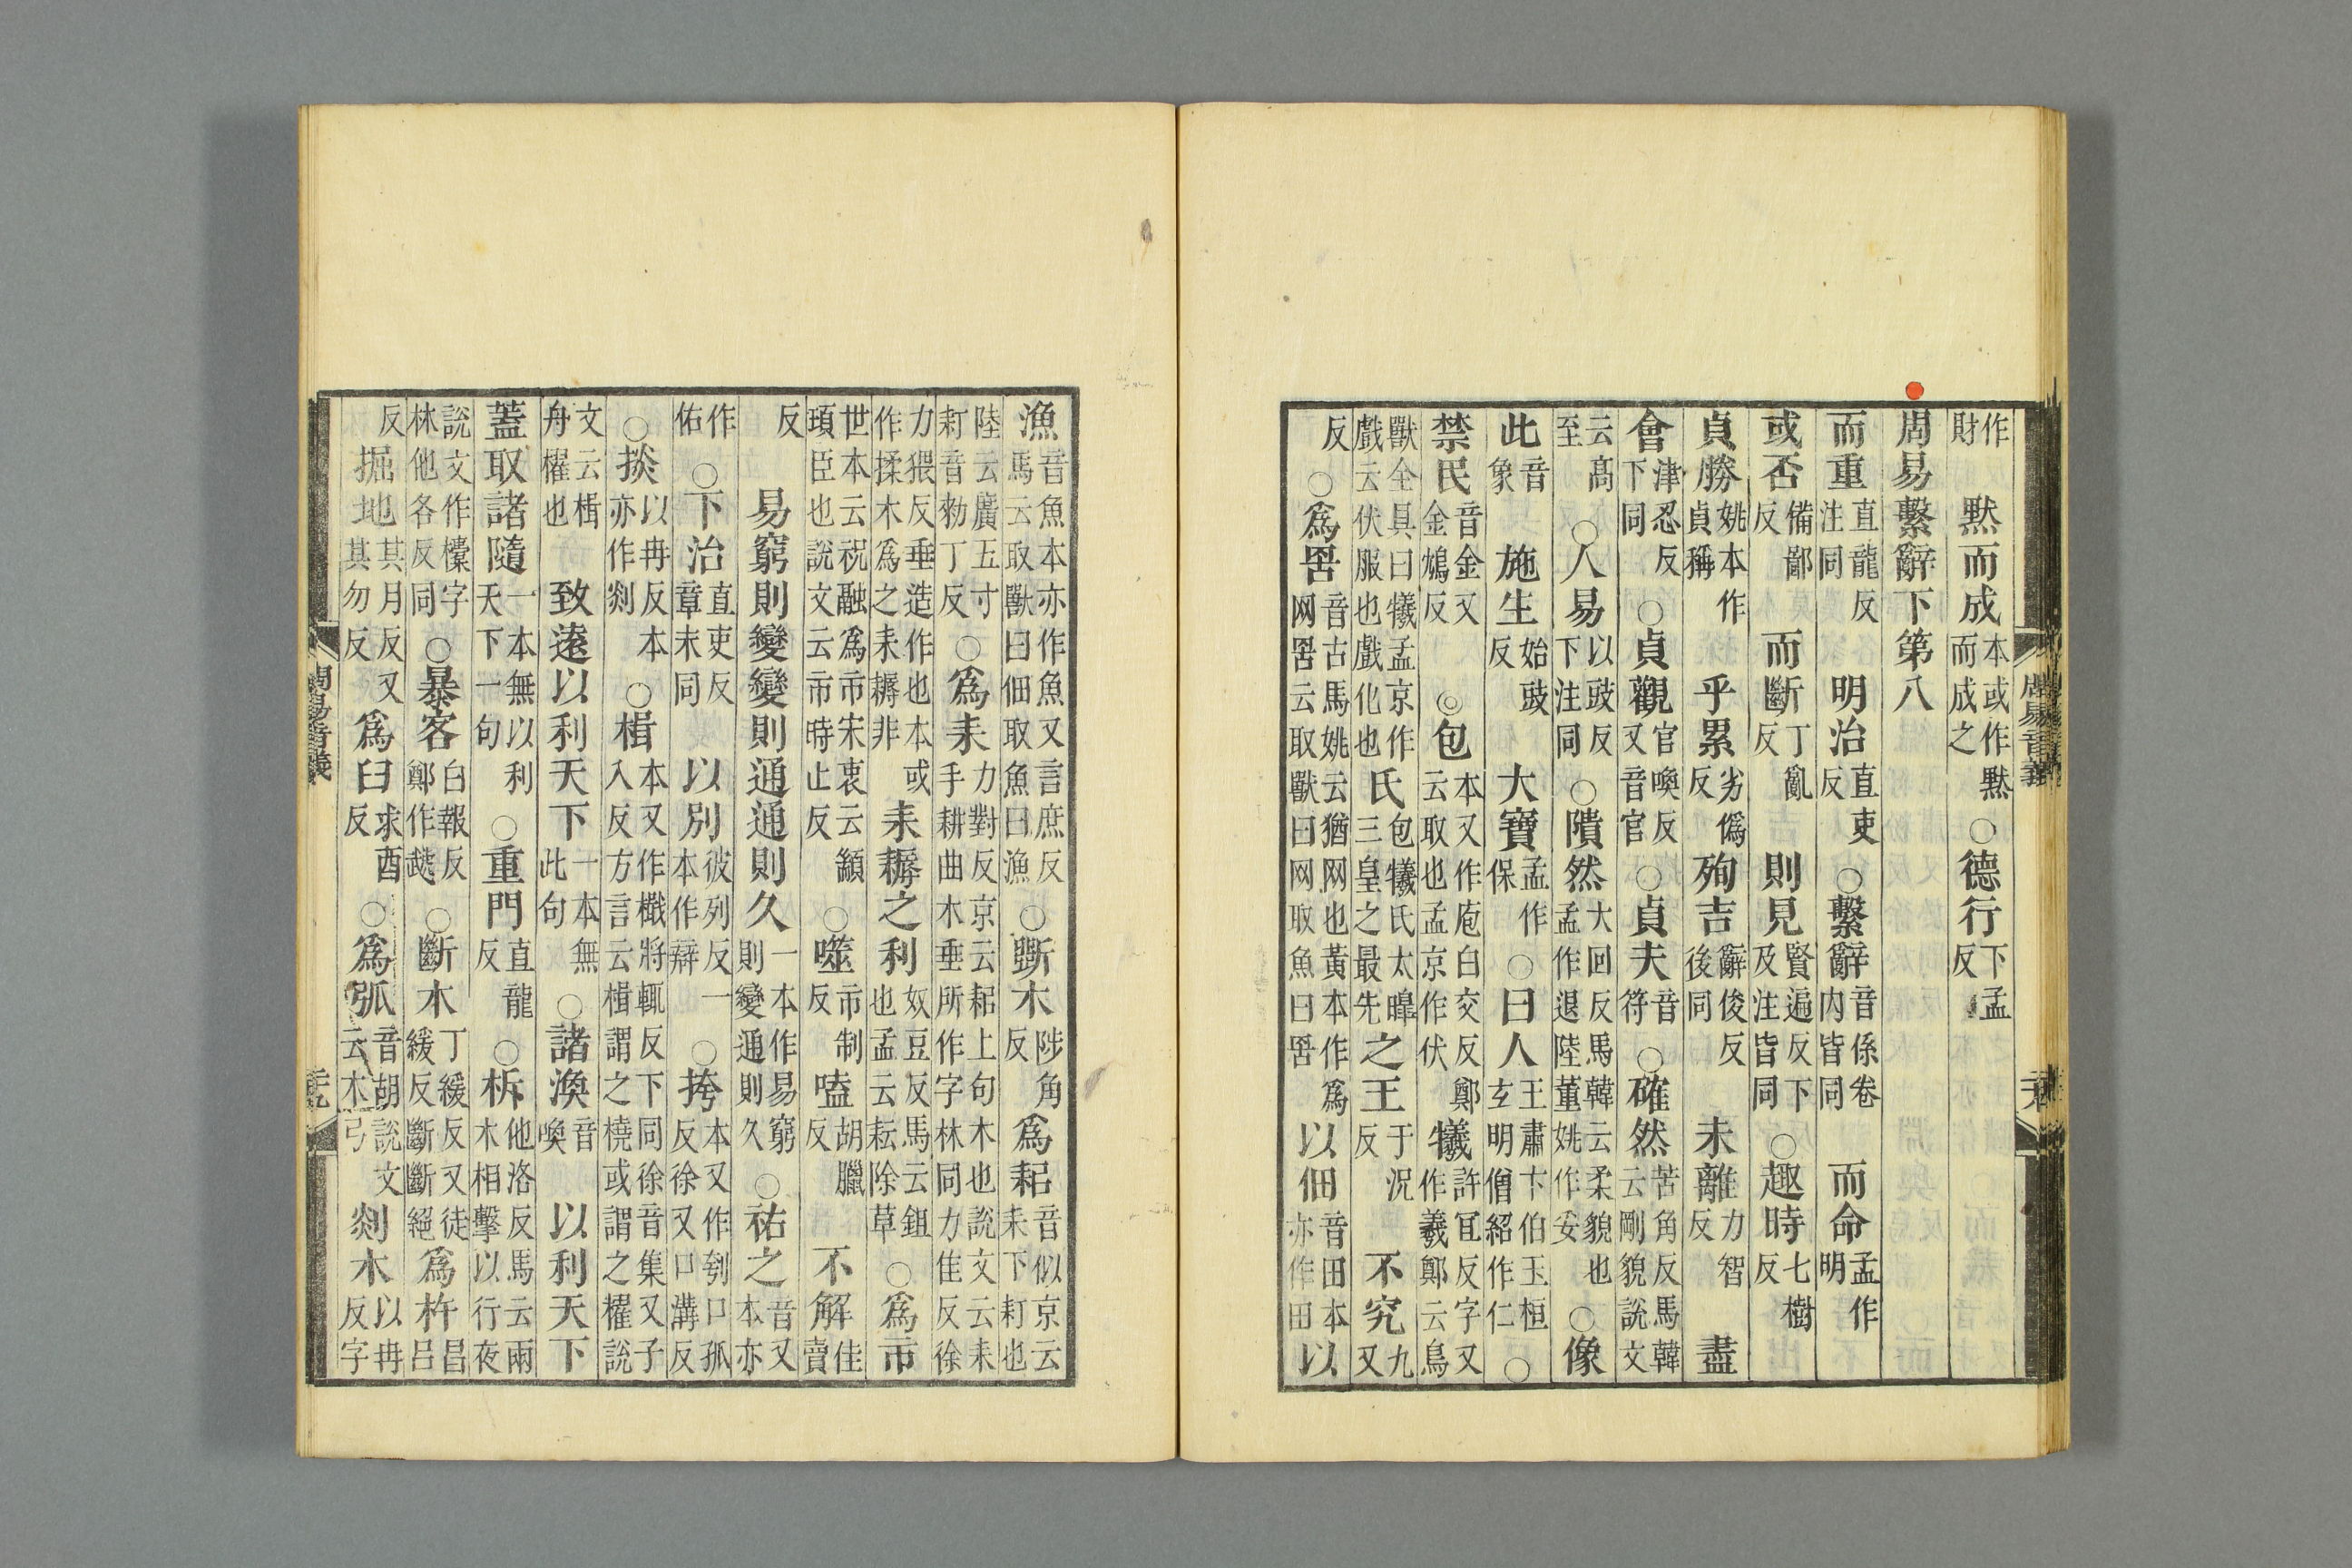 作財　默而成本或作默而成之○德行下孟反
周易繫辭下第八
而重直龍反注同　明治直吏反○繫辭音係卷内皆同　而命孟作明
或否備鄙反　而斷丁亂反　則見賢遍反下及注皆同○趣時七樹反
貞勝姚本作貞稱　乎累劣僞反　殉吉辭俊反後同　未離力智反　盡
會津忍反下同○貞觀官喚反又音官○貞夫音符○確然苦角反馬韓云剛貌說文
云高至○人易以豉反下注同○隤然大回反馬韓云柔貌也孟作退陸董姚作妥○像
此音象　施生始豉反　大寶孟作保○曰人王肅卞伯玉桓玄明僧紹作仁○
禁民音金又金鴆反◎包本又作庖白交反鄭云取也孟京作伏　犧許宜反字又作羲鄭云鳥
獸全具曰犧孟京作戲云伏服也戲化也　氏包犧氏太皥三皇之最先　之王于況反　不究九又
反○爲罟音古馬姚云猶网也黃本作爲网罟云取獸曰网取魚曰罟　以佃音田本亦作田　以
周易音義
漁音魚本亦作魚又言庶反馬云取獸曰佃取魚曰漁○斲木陟角反　爲耜音似京云耒下耓也
陸云廣五寸耓音勑丁反○爲耒力對反京云耜上句木也說文云耒手耕曲木垂所作字林同力佳反徐
力猥反垂造作也本或作揉木爲之耒耨非　耒耨之利奴豆反馬云鉏也孟云耘除草○爲市
世本云祝融爲市宋衷云顓頊臣也說文云市時止反○噬市制反　嗑胡臘反　不解佳賣
反　易窮則變變則通通則久一本作易窮則變通則久○祐之音又本亦
作佑○下治直吏反章末同　以別彼列反一本作辯○挎本又作刳口孤反徐又口溝反
○掞以冉反本亦作剡○楫本又作檝將輒反下同徐音集又子入反方言云楫謂之橈或謂之櫂說
文云楫舟櫂也　致遠以利天下一本無此句○諸渙音喚　以利天下
蓋取諸隨一本無以利天下一句○重門直龍反○柝他洛反馬云兩木相擊以行夜
說文作欜字林他各反同○暴客白報反鄭作虣○斷木丁緩反又徒緩反斷斷絕　爲杵昌吕
反　掘地其月反又其勿反　爲臼求酉反○爲弧音胡說文云木弓　剡木以冉反字
周易音義